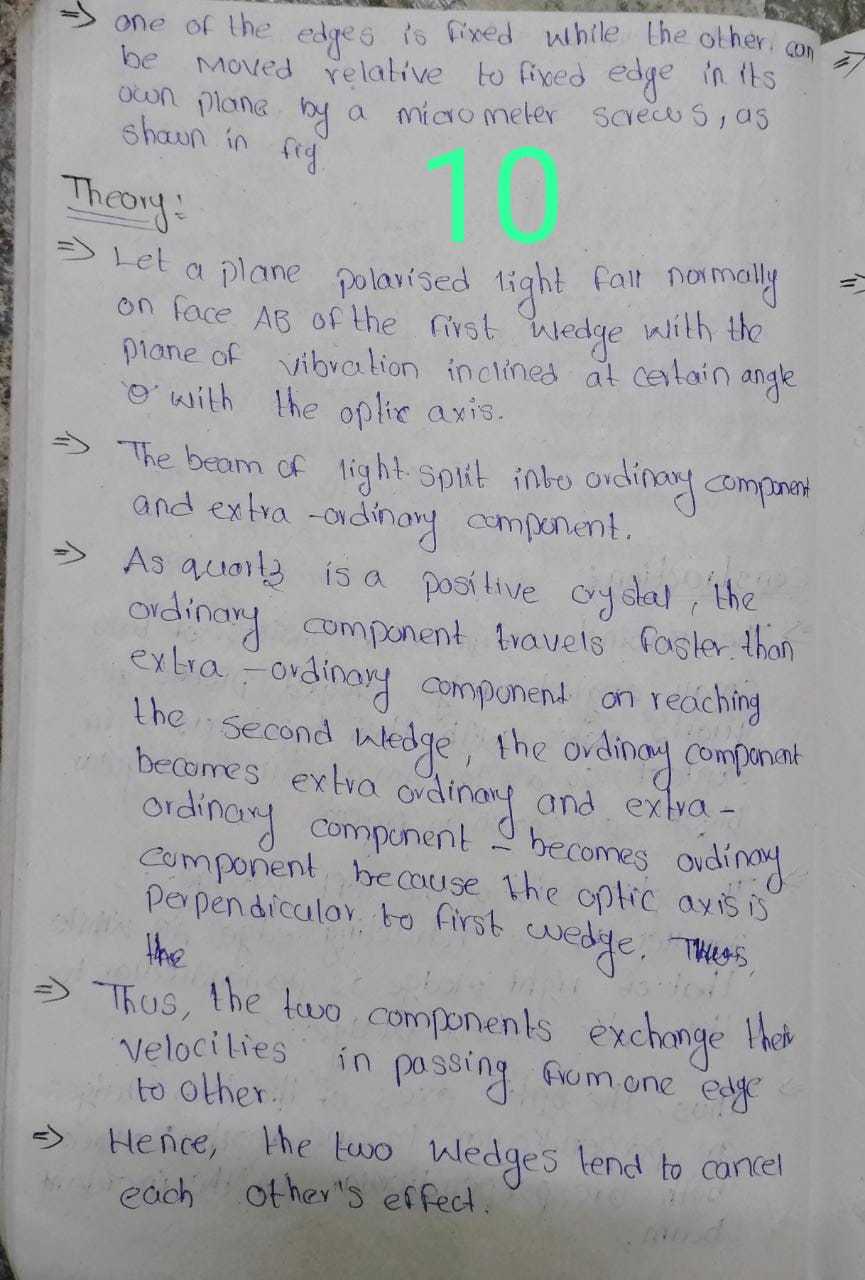 => one of the edges is fixed while the other can
be moved relative to fixed edge in its
own plane by a micrometer screws, as
shawn in fig
10
Theory:
=> Let a plane polarised light fall normally
on face AB of the first wedge with the
plane of vibration inclined at certain angle
'θ' with the optic axis.
=> The beam of light split into ordinary component
and extra-ordinary component.
=> As quartz is a positive crystal, the
ordinary component travels faster than
extra-ordinary component on reaching
the second wedge, the ordinary component
becomes extra ordinary and extra-
ordinary component - becomes ordinary
component because the optic axis is
perpendicular to first wedge.
the
=> Thus, the two components exchange their
velocities in passing from one edge
to other.
=> Hence, the two wedges tend to cancel
each other's effect.